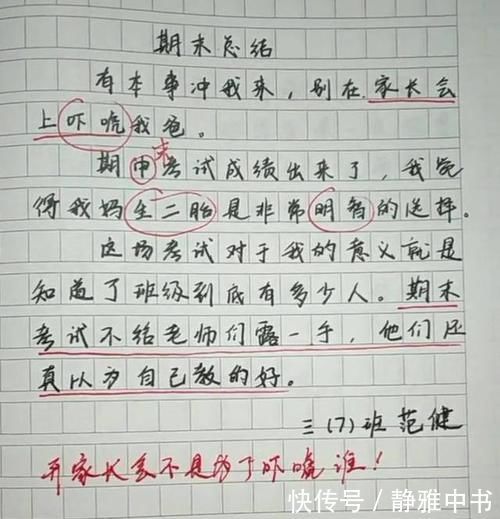 期末总结
有本事冲我来，别在家长会
上吓唬我爸。
期中末考试成绩出来了，我觉
得我妈生二胎是非常明智的选择。
这场考试对于我的意义就是
知道了班级到底有多少人。期末
考试不给老师们露一手，他们还
真以为自己教的好。
三(7)班范健
开家长会不是为了吓唬谁！
快传号／静雅中书